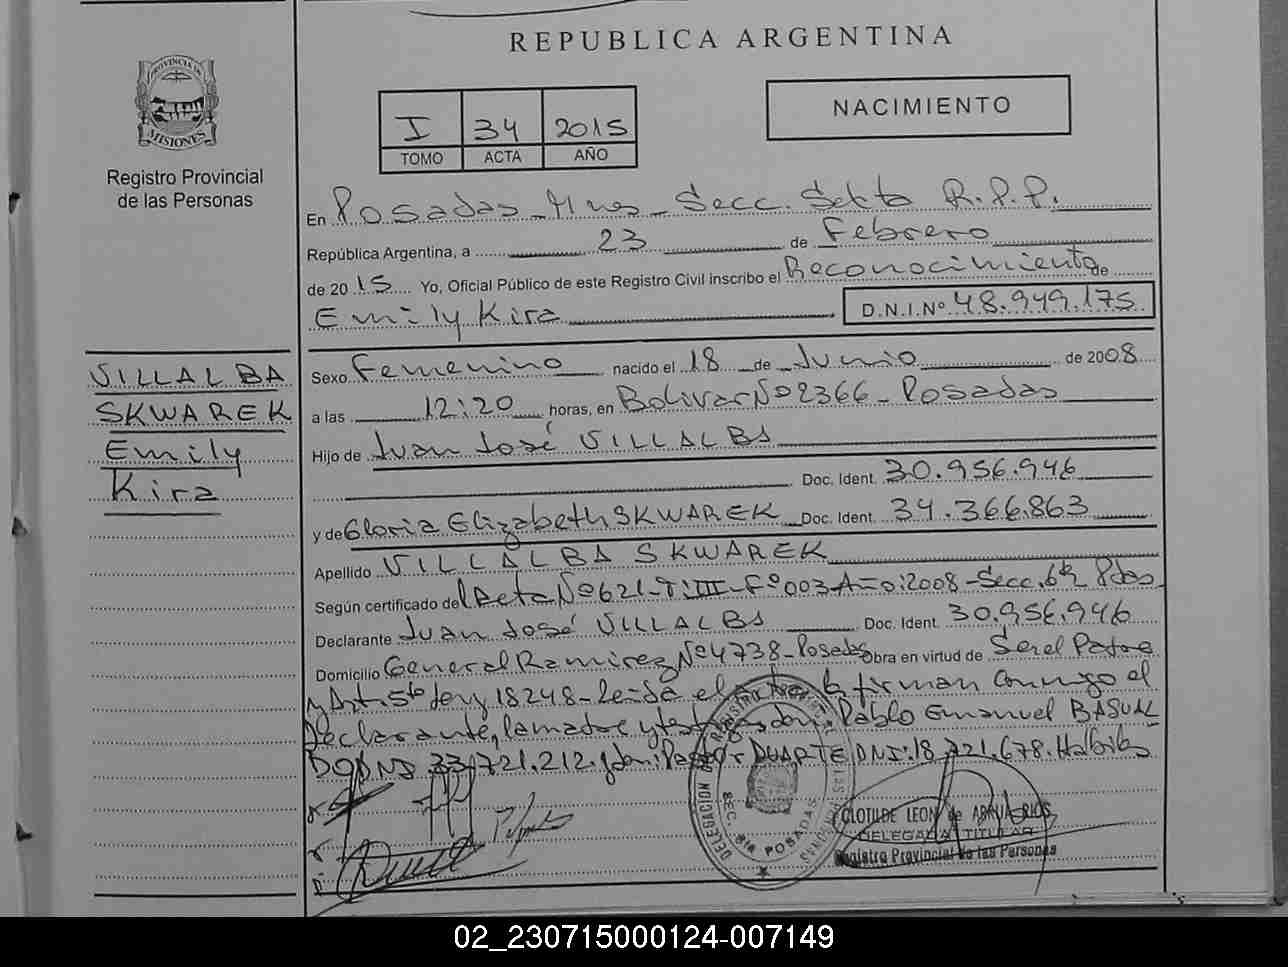 REPUBLICA ARGENTINA
PROVINCIA DE
MISIONES
Registro Provincial
de las Personas
I 34 2015
TOMO ACTA AÑO
NACIMIENTO
En Posadas - Mnes - Secc. Sexta R.P.P.
República Argentina, a 23 de Febrero
de 2015 Yo, Oficial Público de este Registro Civil inscribo el Reconocimiento de
Emily Kira D.N.I. Nº 48.949.175
VILLALBA
SKWAREK
Emily
Kira
Sexo Femenino nacido el 18 de Junio de 2008
a las 12:20 horas, en Bolivar Nº 2366 - Posadas
Hijo de Juan José VILLALBA
Doc. Ident. 30.956.946
y de Gloria Elizabeth SKWAREK Doc. Ident. 34.366.863
Apellido VILLALBA SKWAREK
Según certificado del Acta Nº 621 - T: III - Fº 003 - Año: 2008 - Secc. 6ta Pdas
Declarante Juan José VILLALBA Doc. Ident. 30.956.946
Domicilio General Ramirez Nº 4738 - Posadas Obra en virtud de Ser el Padre
y Art. 5to Ley 18248 - Leída el acta la firman conmigo el
declarante, la madre y testigos don: Pablo Emanuel BASUAL
DO DNI 33.721.212 y don: DUARTE DNI: 18.721.678.
DELEGACION
SEC. 6ta POSADAS
CLOTILDE LEON de ARRUA RIOS
DELEGADA TITULAR
Registro Provincial de las Personas
02_230715000124-007149